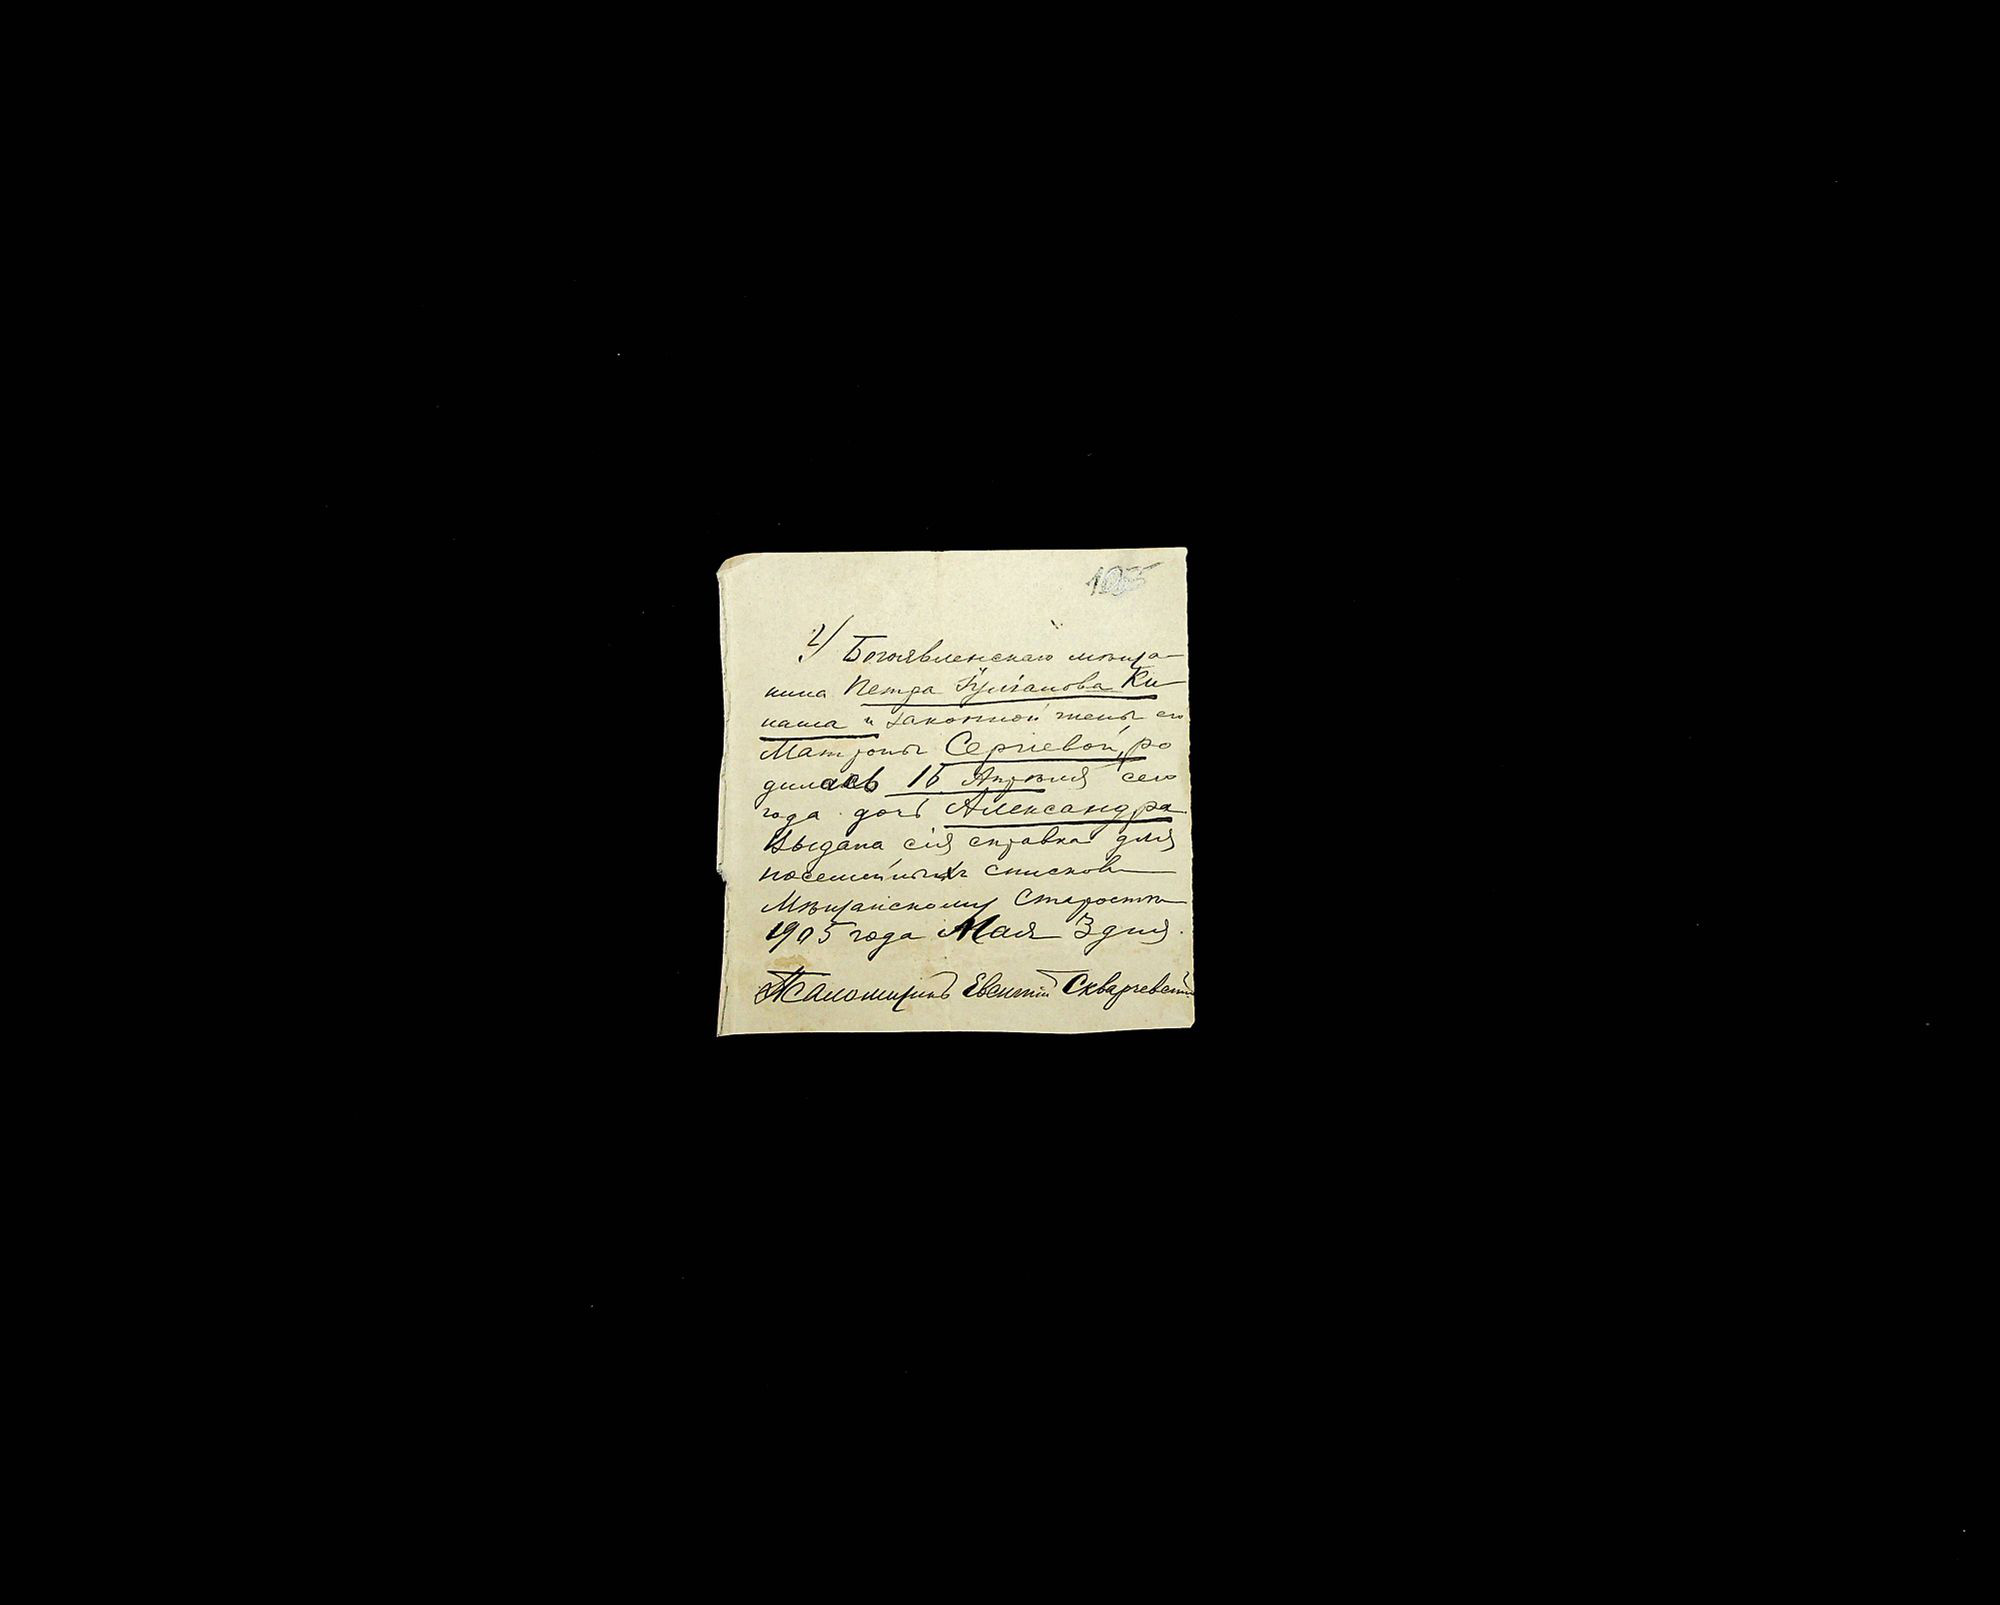 1905
2) Богоявленскаго мѣща-
нина Петра Гулiанова Ки
наша и законной жены его
Матроны Сергiевой, ро
дилась 16 Апрѣля сего
года дочь Александра
Выдана сiя справка для
посемейныхъ списковъ
Мѣщанскому Старостѣ
1905 года Мая 3 дня.
Псаломщикъ Евгенiй Скварчевскiй